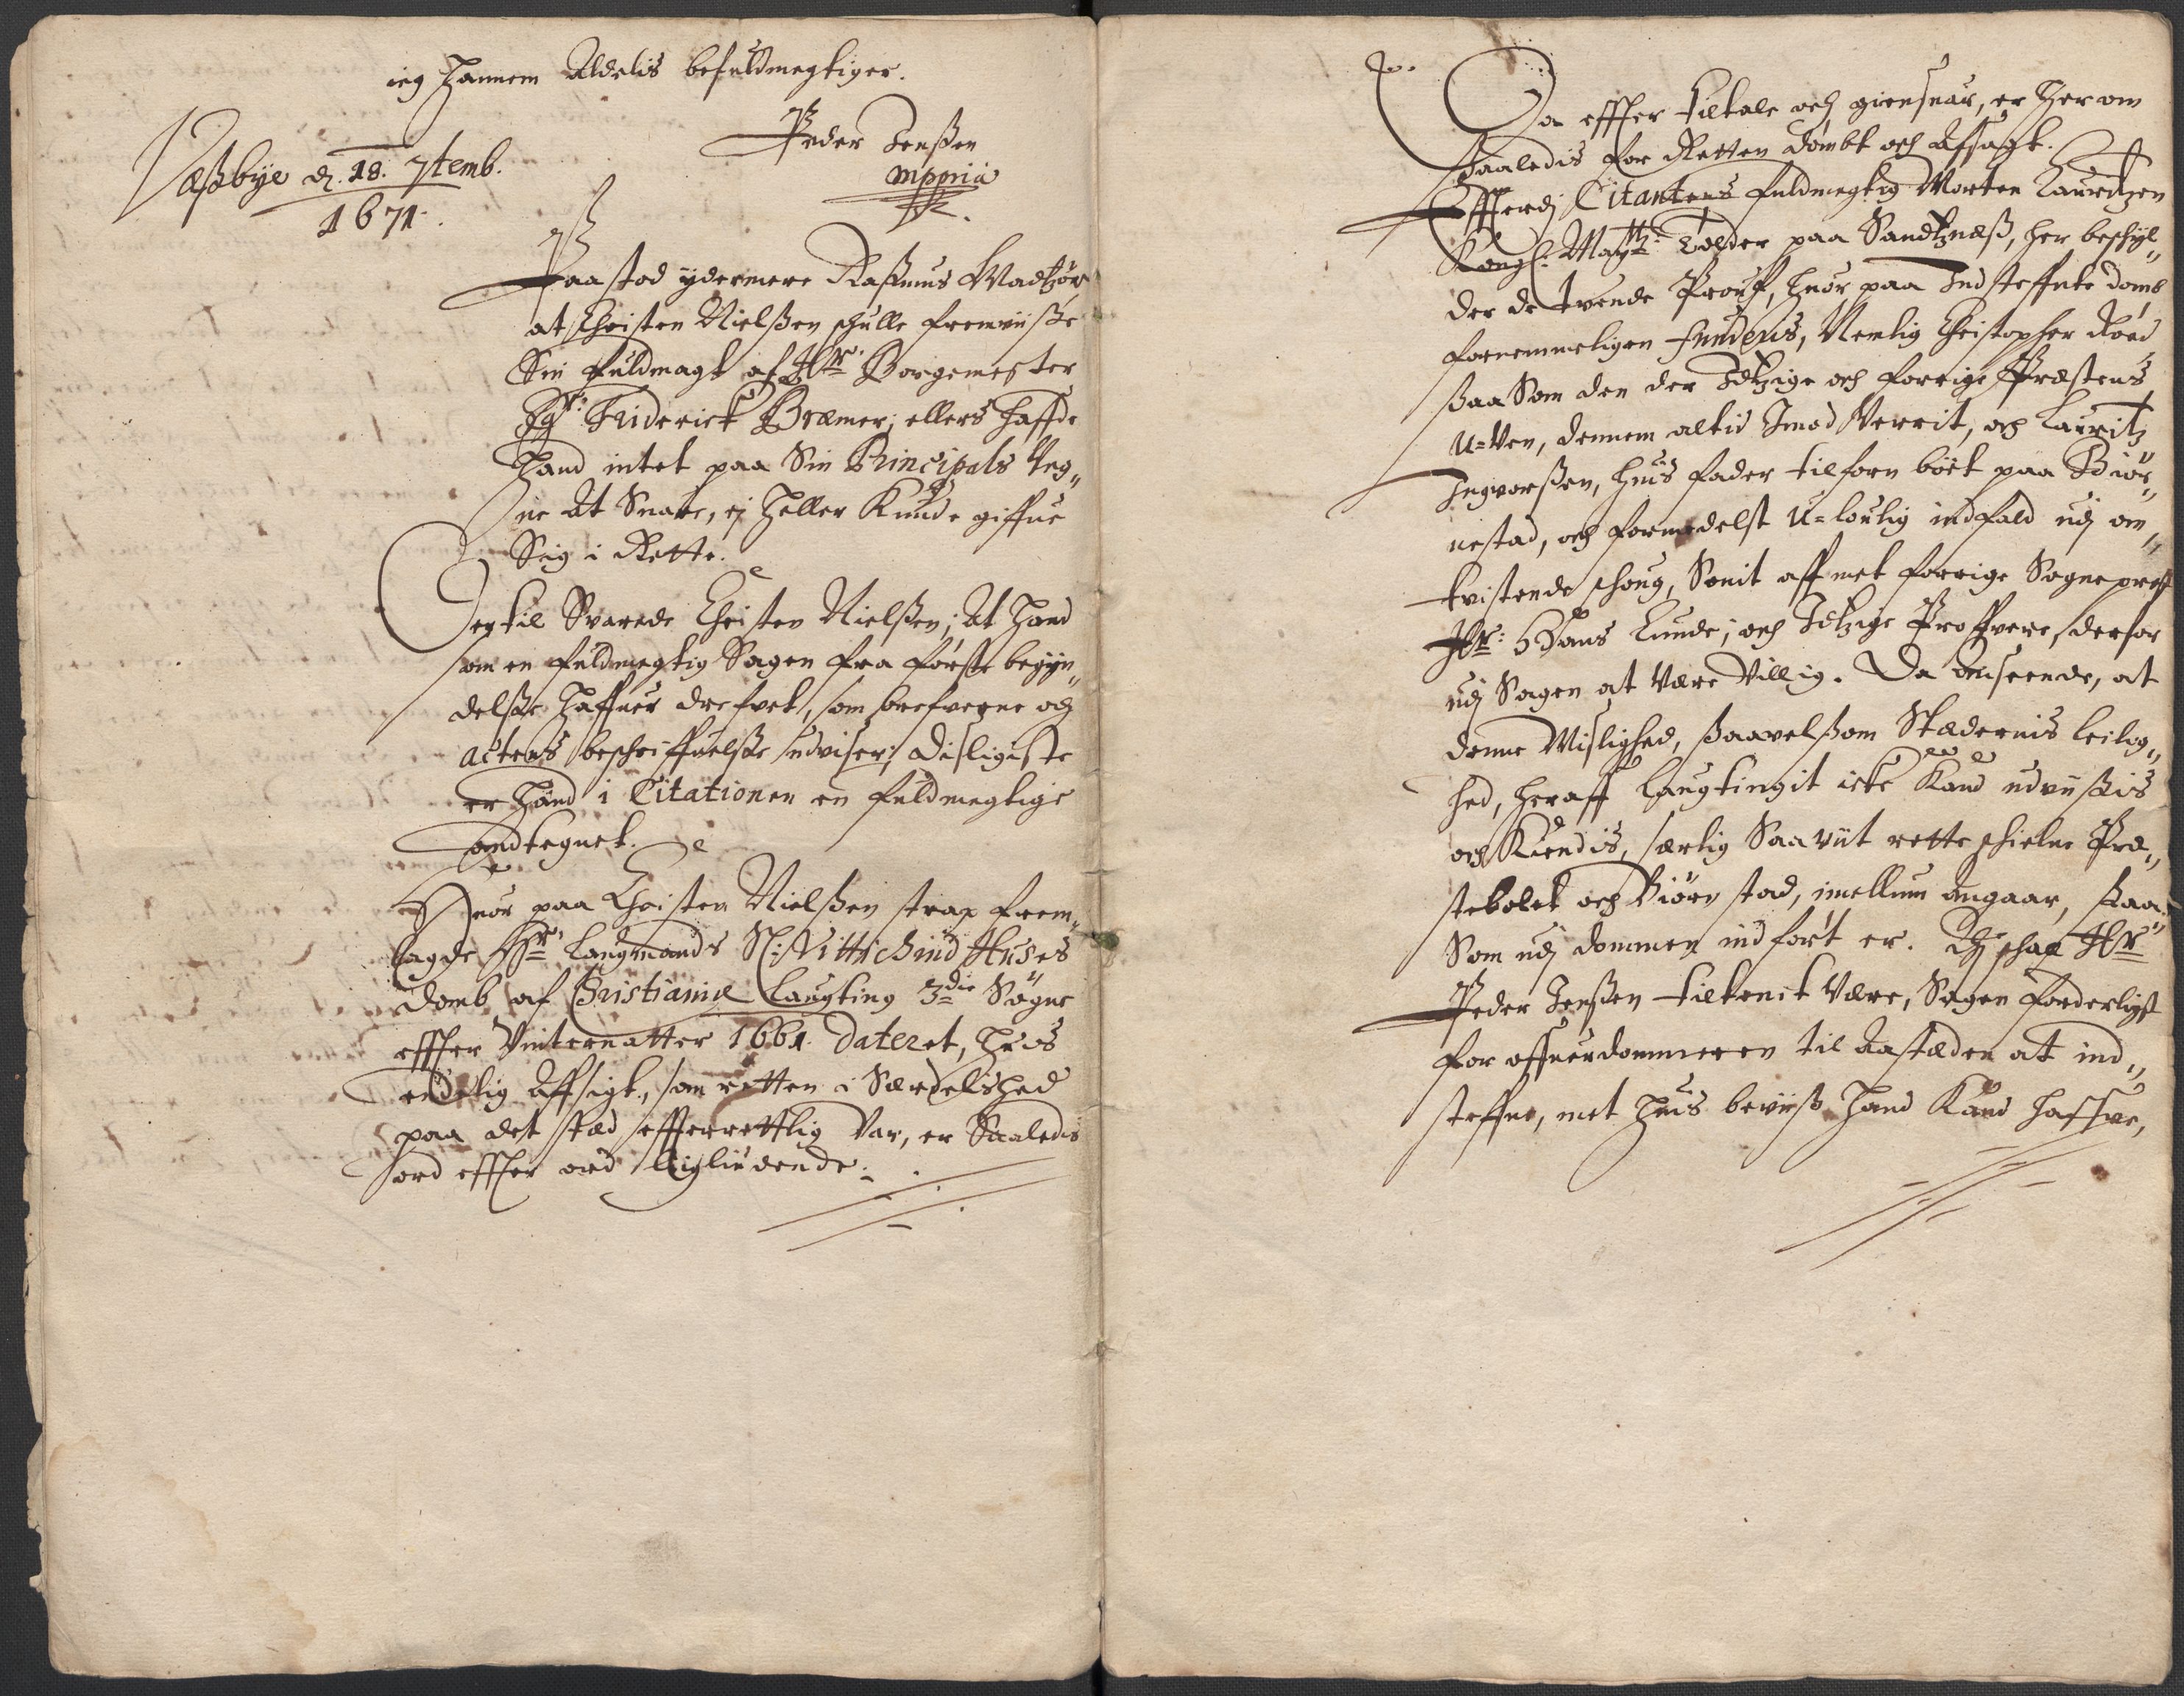 ieg hannem Aldelis befuldmegtiger.
Peder Jenßen
mppria
Næßbÿe d. 18. 7temb.
1671.
Paastod ydermere Raßmus Madtzøn
at Christen Nielßen schulle fremviiße
Sin fuldmagt af Hr. Borgemester
Sr. Friderick Bræmer, ellers haffde
Hand intet paa Sin Principals Veg„
ne At Suare, ej heller Kunde giffue
Sig i Rette.
Der til Svarede Christen Nielßen; At hand
som en fuldmegtig Sagen fra første begÿn„
delße haffuer drefvet, som brefvene och
actens beschriffuelße udviser, disligeste
er hand i Citationen en fuldmegtige
andtegnet.
Huor paa Christen Nielßen strax frem„
lagde Hr. Laugmands Sl: Vittichind Huses
domb af Christianiæ Laugting 3die Søgne
effter Vinternatter 1661. dateret, huis
endelig Affsigt, som retten i Særdelished
paa det sted effterrettlig Var, er Saaledis
ord effter ord liudende:
Da effter tiltale och giensuar, er her om
Saaledis for Retten dømbt och Afsagt.
Effterdj Citantens fuldmegtig Morten Lauridtzen
Kongl: Maytts: Tolder paa Sandtznæß, her beschÿl„
der de tuende Prouf, huor paa Indsteffnte domb
fornemmeligen funderis, Nemlig Christopher Roed
ßaa Som den der Idtzige och forrige Præstens
U=Ven, dennem altid Imod Verrit, och Lauritz
Ingvorßen, huis fader tilforn boet paa Biør„
nestad, och formedelst U=loulig indfald udj om„
tvistende schoug, Sönit aff met forrige Sogneprest
Hr: Hans Lunde; och Idtzige Proffvere, derfor
udj Sagen at Være Villig. Da Anseende, at
denne Mislighed, ßaavelsom Stædernis leilig„
hed, heraff Laugtingit icke Kand udviißis
och Kiendis, særlig Saa viit rette schielne Præ„
stebolet och Biørnstad, imellum Angaar, ßaa
Som udj dommen indført er. Thj schal Hr.
Peder Jenßen tiltenckt Være, Sagen forderligst
for offuerdommeren til Aastæden at ind„
steffne, met huis beviiß hand Kand haffue,